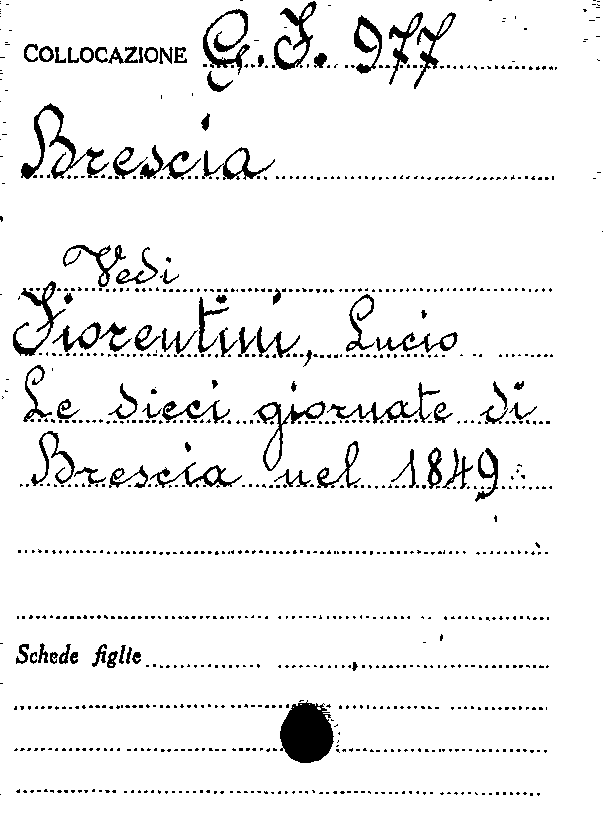 COLLOCAZIONE G.F. 977
Brescia
Vedi
Fiorentini, Lucio
Le dieci giornate di
Brescia nel 1849
Schede figlie